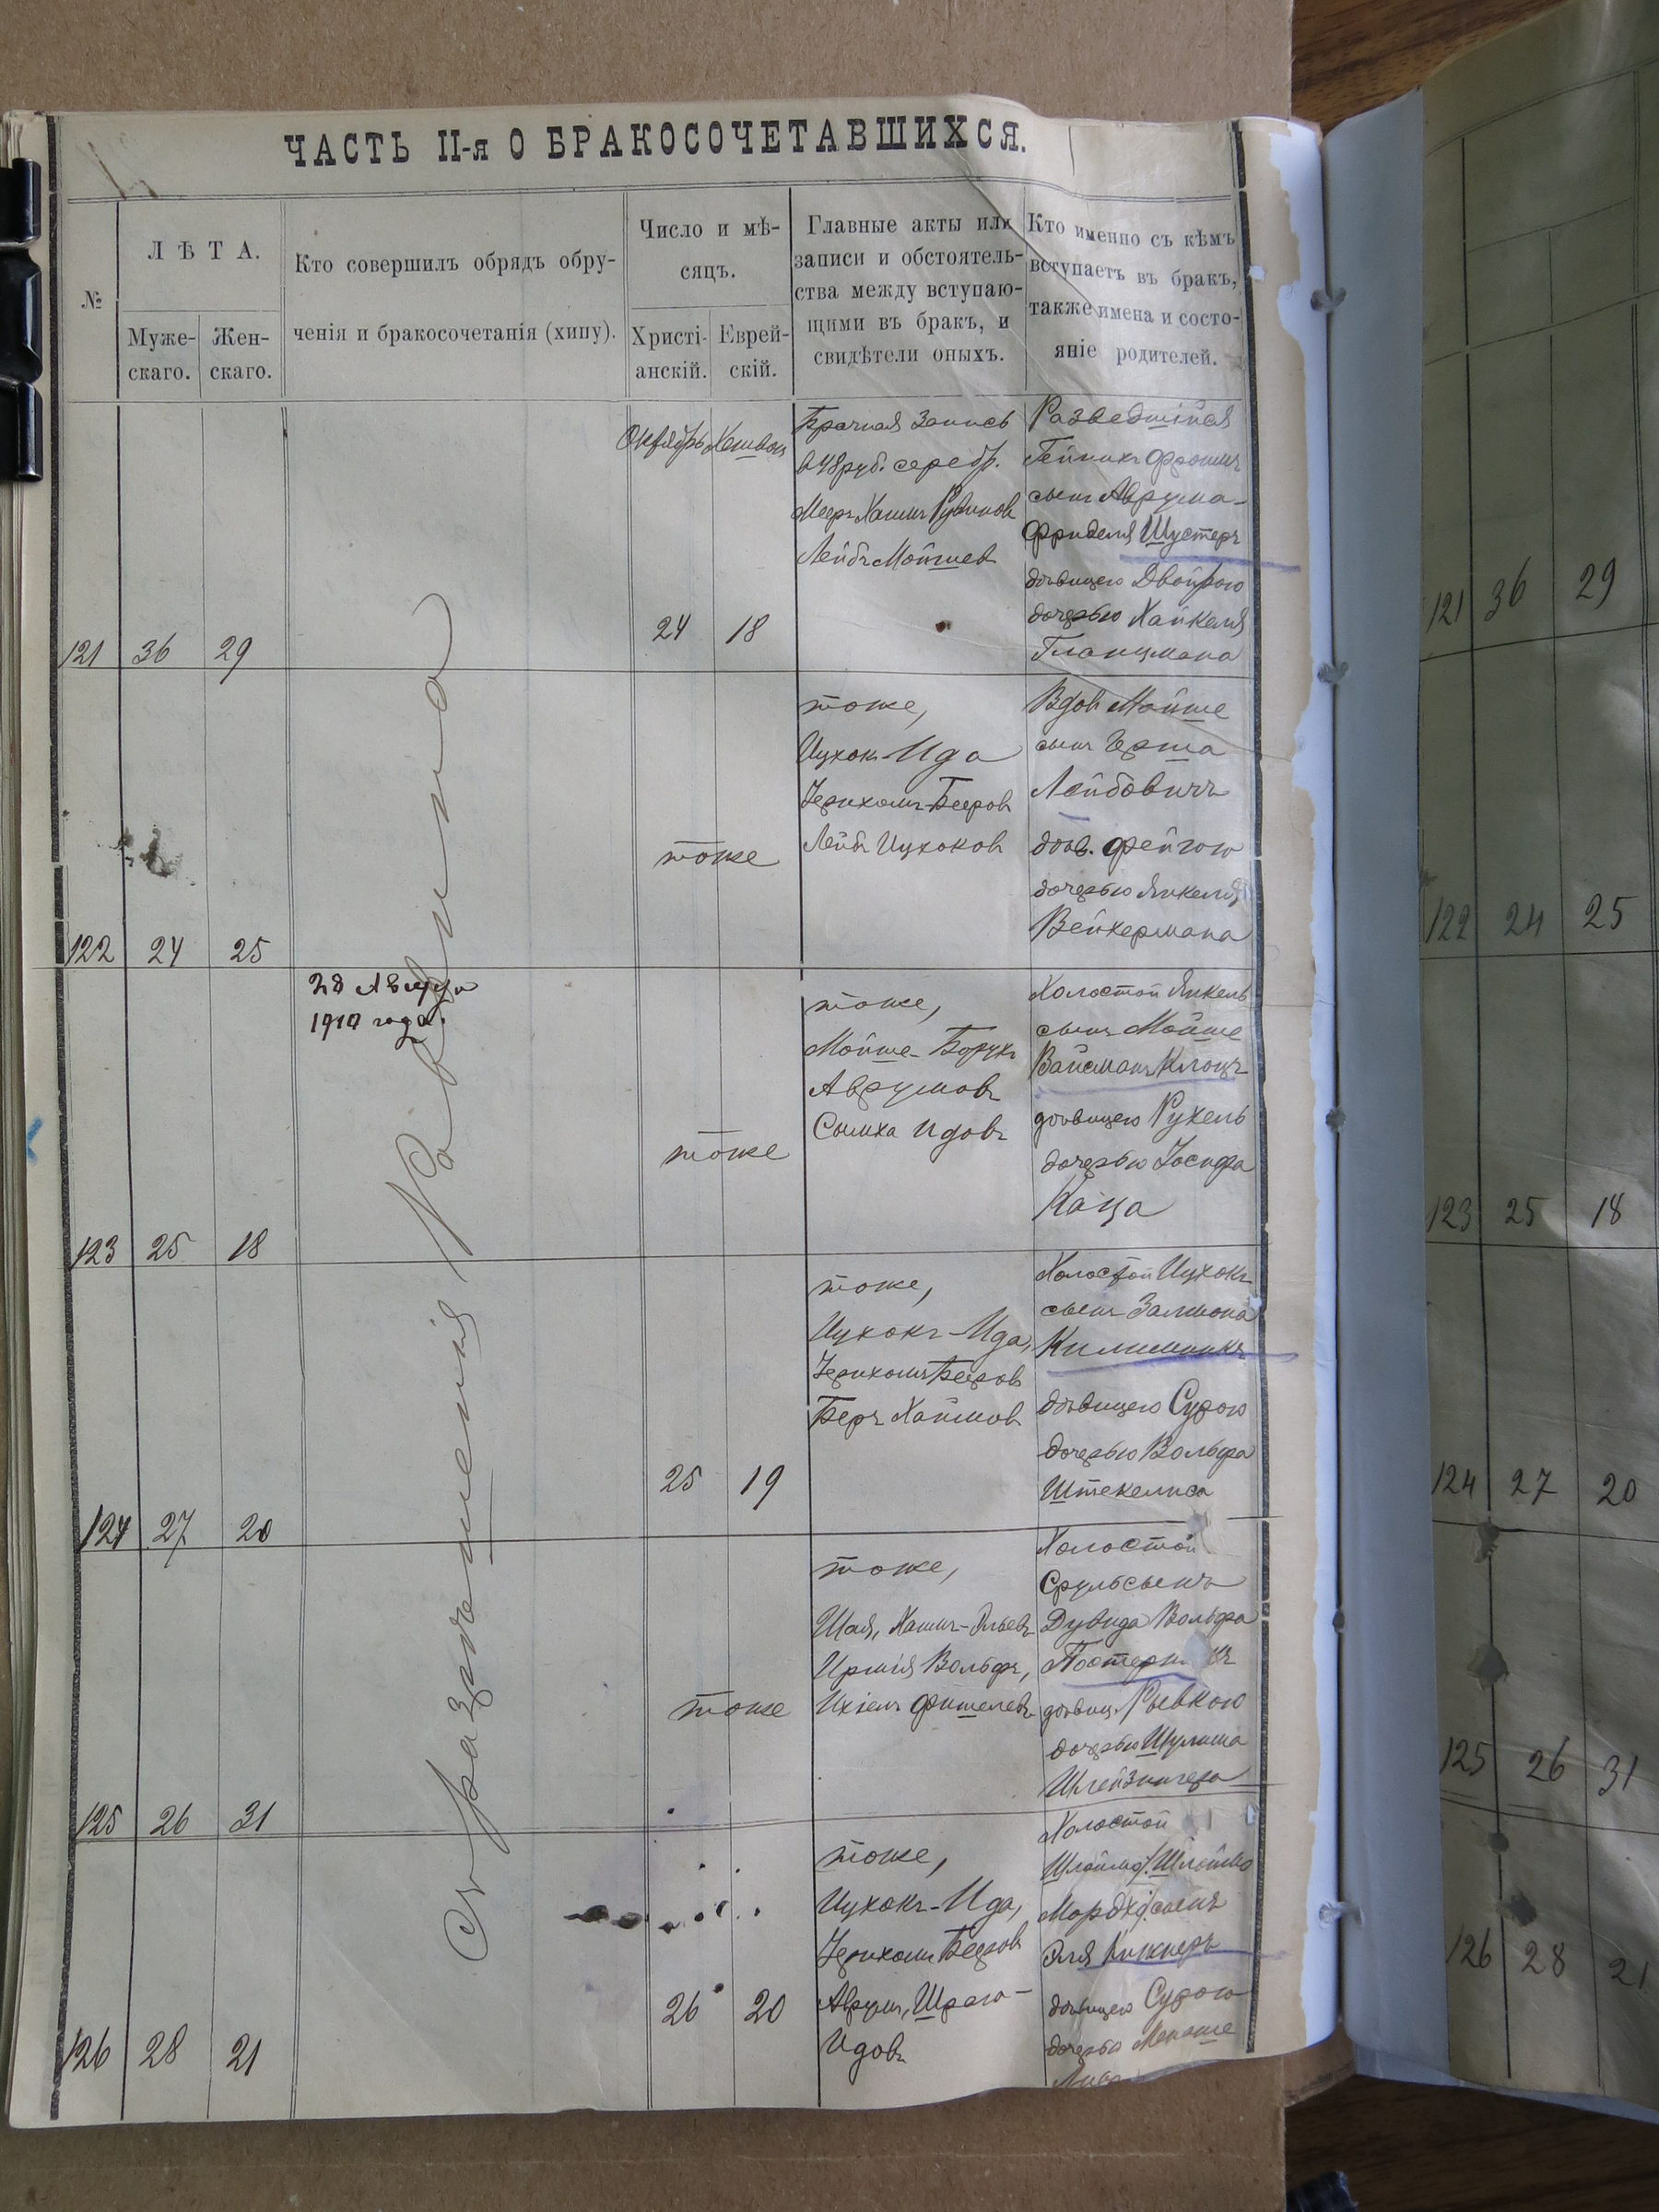 ЧАСТЬ II-я О БРАКОСОЧЕТАВШИХСЯ.
№
ЛѢТА.
Муже-
скаго.
Жен-
скаго.
Кто совершилъ обрядъ обру-
ченія и бракосочетанія (хипу).
Число и мѣ-
сяцъ.
Христі-
анскій.
Еврей-
скій.
Главные акты или
записи и обстоятель-
ства между вступаю-
щими въ бракъ, и
свидѣтели оныхъ.
Кто именно съ кѣмъ
вступаетъ въ бракъ,
также имена и состо-
яніе родителей.
Съ разрѣшенія Раввина
121 36 29
Октябрь Хешван
24 18
Брачная Запись
в 48 руб. серебр.
Мееръ Хаимъ Рувинов
Лейбъ Мойшев
Разведшійся
сынъ Аврума-
Фриделя Шустеръ
дѣвицею Двойрою
дочерью Хайкеля
Гланцмана
122 24 25
тоже
тоже,
Ицхокъ-Ида
Иерихомъ Бееров
Лейбъ Ицхоков
Вдов Мойше
сынъ Герша
Лейбовичъ
дѣв. Фейгою
дочерью Янкеля
Вейхермана
123 25 18
28 Августа
1910 года.
тоже
тоже,
Мойше-Борухъ
Аврумовъ
Сымха Идовъ
Холостой Янкель
сынъ Мойше
Вайсманъ Клоцъ
дѣвицею Рухель
дочерью Іосифа
Каца
124 27 20
25 19
тоже,
Ицхокъ-Ида,
Иерихомъ Бееров
Беръ Хаимов
Холостой Ицхокъ
сынъ Залмона
Килимникъ
дѣвицею Сурою
дочерью Вольфа
Штекелиса
125 26 31
тоже
тоже,
Шая, Хаимъ-Эльевъ
Вольфъ,
Ихіелъ Фишелевъ
Холостой
Сруль сынъ
Дувида Вольфа
дѣвиц. Рывкою
дочерью Шулима
Шлейзингера
126 28 21
26 20
тоже,
Ицхокъ-Ида,
Иерихомъ Бееров
Аврум, Шрага-
Идовъ
Холостой
Шлойма / Шлойма
Мордхе / сынъ
Эля
дѣвицею Сурою
дочерью Менаше
121 36 29
122 24 25
123 25 18
124 27 20
125 26 31
126 28 21